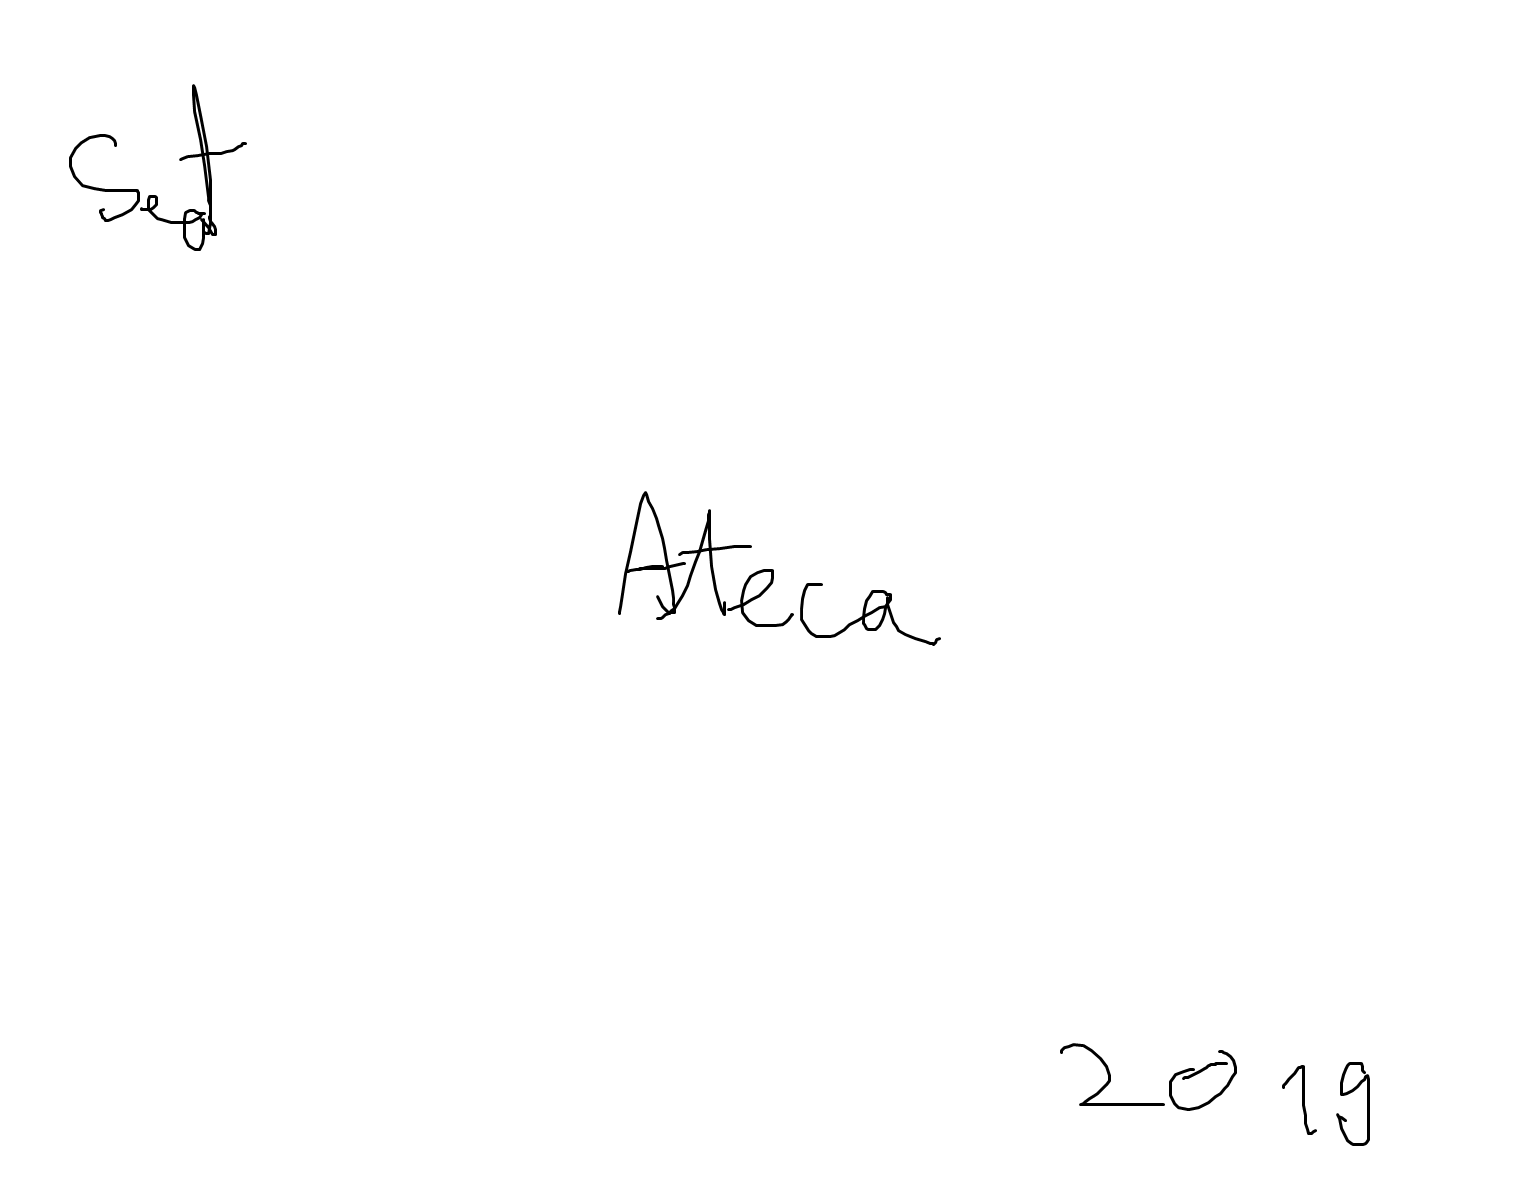 Seat
Ateca
2019